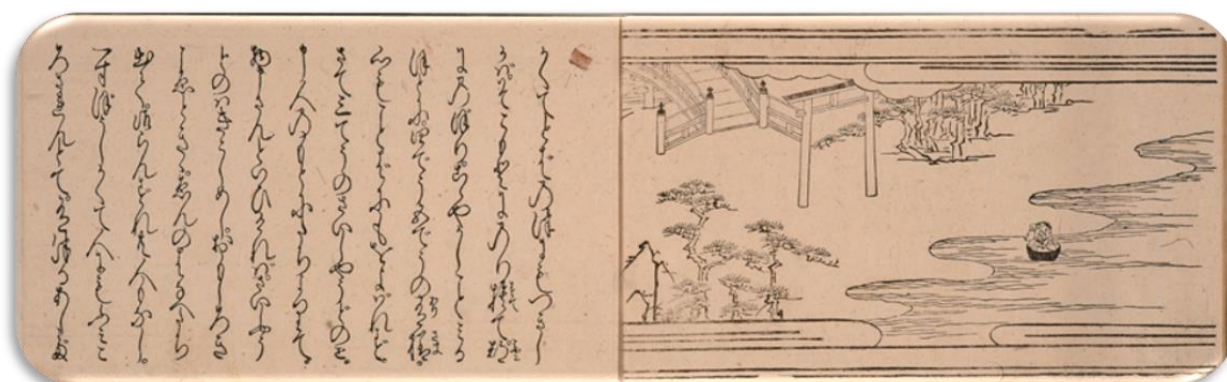 かくてとばの津にもつきし
かばそこもとにのり捨て都
にのぼりこゝやかしことみる
ほどに四でう五でうの有様
心もことばにもをよばれず
さて三でうのさいしやうどのと
申人のもとにたちよりて
物申さんといひければさいしやう
どのはきこしめしおもしろき
こゑときゝゑんのはなへたち
出て御らんずれ共人もなし。
一寸ぼうしかくて人にもふみこ
ろされんとて有つるあしだ